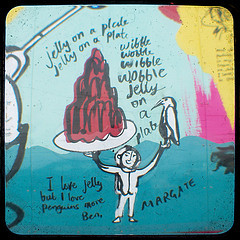 Jelly on a plate
Jelly on a plat.
wibble
wobble
wibble
wobble
jelly
on
a
plat
I love jelly
but I love
penguins more
Ben.
MARGATE